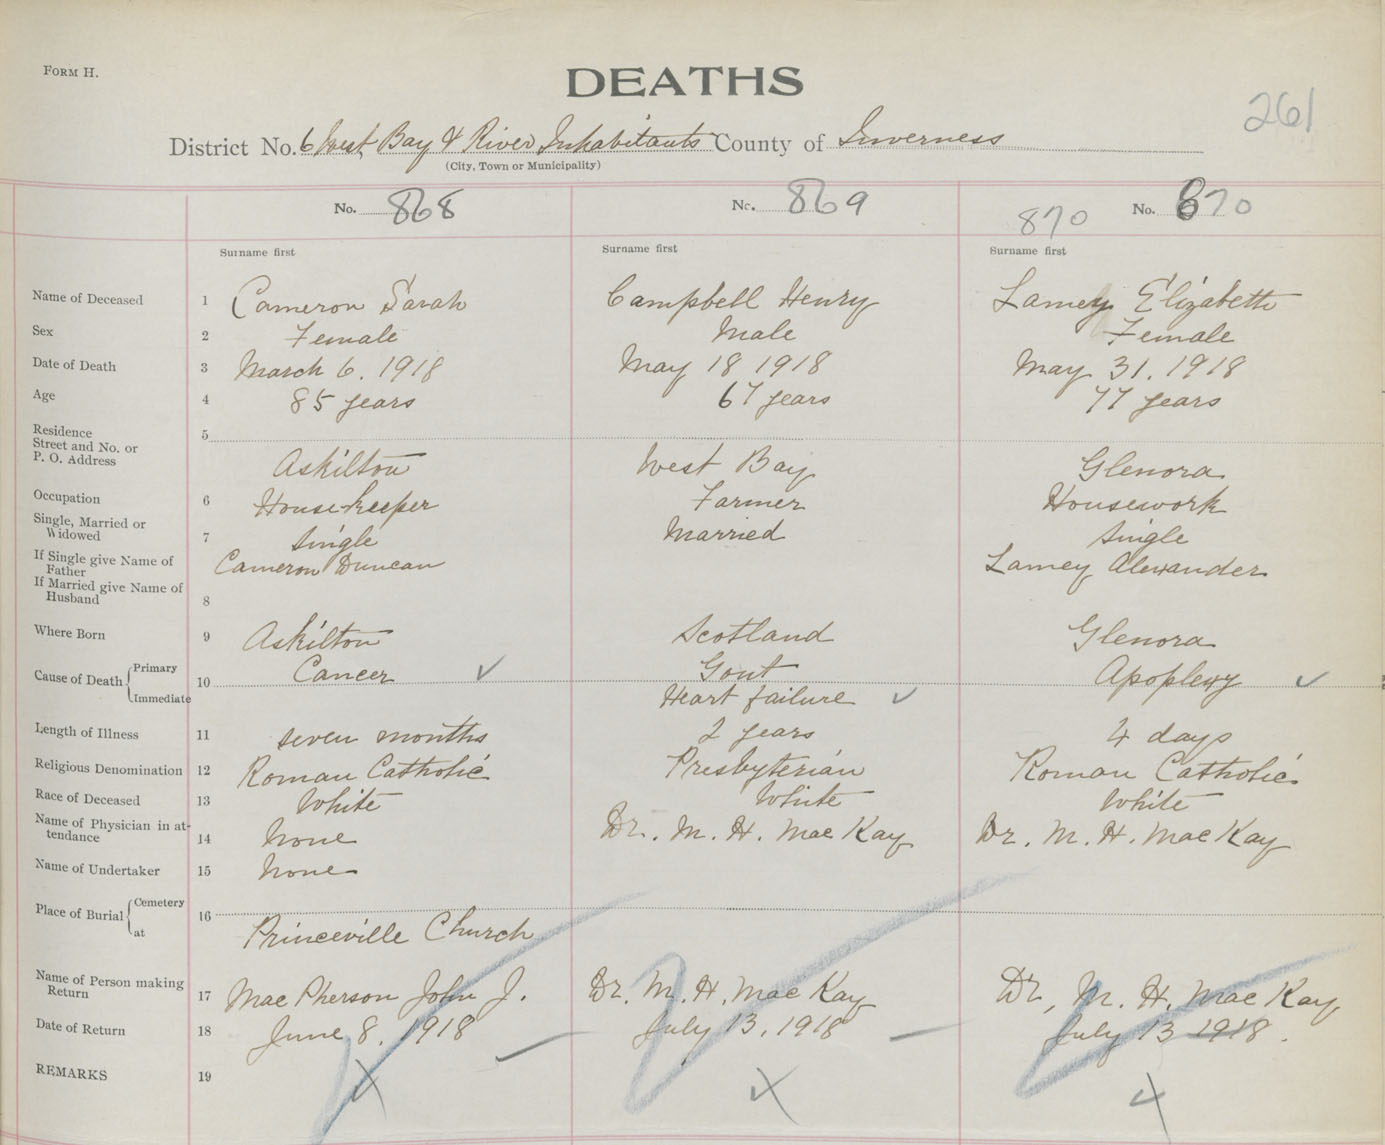 FORM H.
261
DEATHS
District No. 6 West Bay & River Inhabitants County of Inverness
(City, Town or Municipality)
No. 868 No. 869 870 No. 870
Surname first Surname first Surname first
Name of Deceased 1 Cameron Sarah Campbell Henry Lamey Elizabeth
Sex 2 Female Male Female
Date of Death 3 March 6. 1918 May 18 1918 May 31. 1918
Age 4 85 years 67 years 77 years
Residence 5
Street and No. or
P. O. Address Askilton West Bay Glenora
Occupation 6 Housekeeper Farmer Housework
Single, Married or
Widowed 7 Single Married Single
If Single give Name of
Father Cameron Duncan Lamey Alexander
If Married give Name of
Husband 8
Where Born 9 Askilton Scotland Glenora
Cause of Death Primary 10 Cancer Gout Apoplexy
Immediate Heart failure
Length of Illness 11 seven months 2 years 4 days
Religious Denomination 12 Roman Catholic Presbyterian Roman Catholic
Race of Deceased 13 White White White
Name of Physician in at-
tendance 14 None Dr. M. H. MacKay Dr. M. H. MacKay
Name of Undertaker 15 None
Place of Burial Cemetery 16
at Princeville Church
Name of Person making
Return 17 MacPherson John J. Dr. M. H. MacKay Dr, M. H. MacKay
Date of Return 18 June 8. 1918 July 13, 1918 July 13 1918.
REMARKS 19